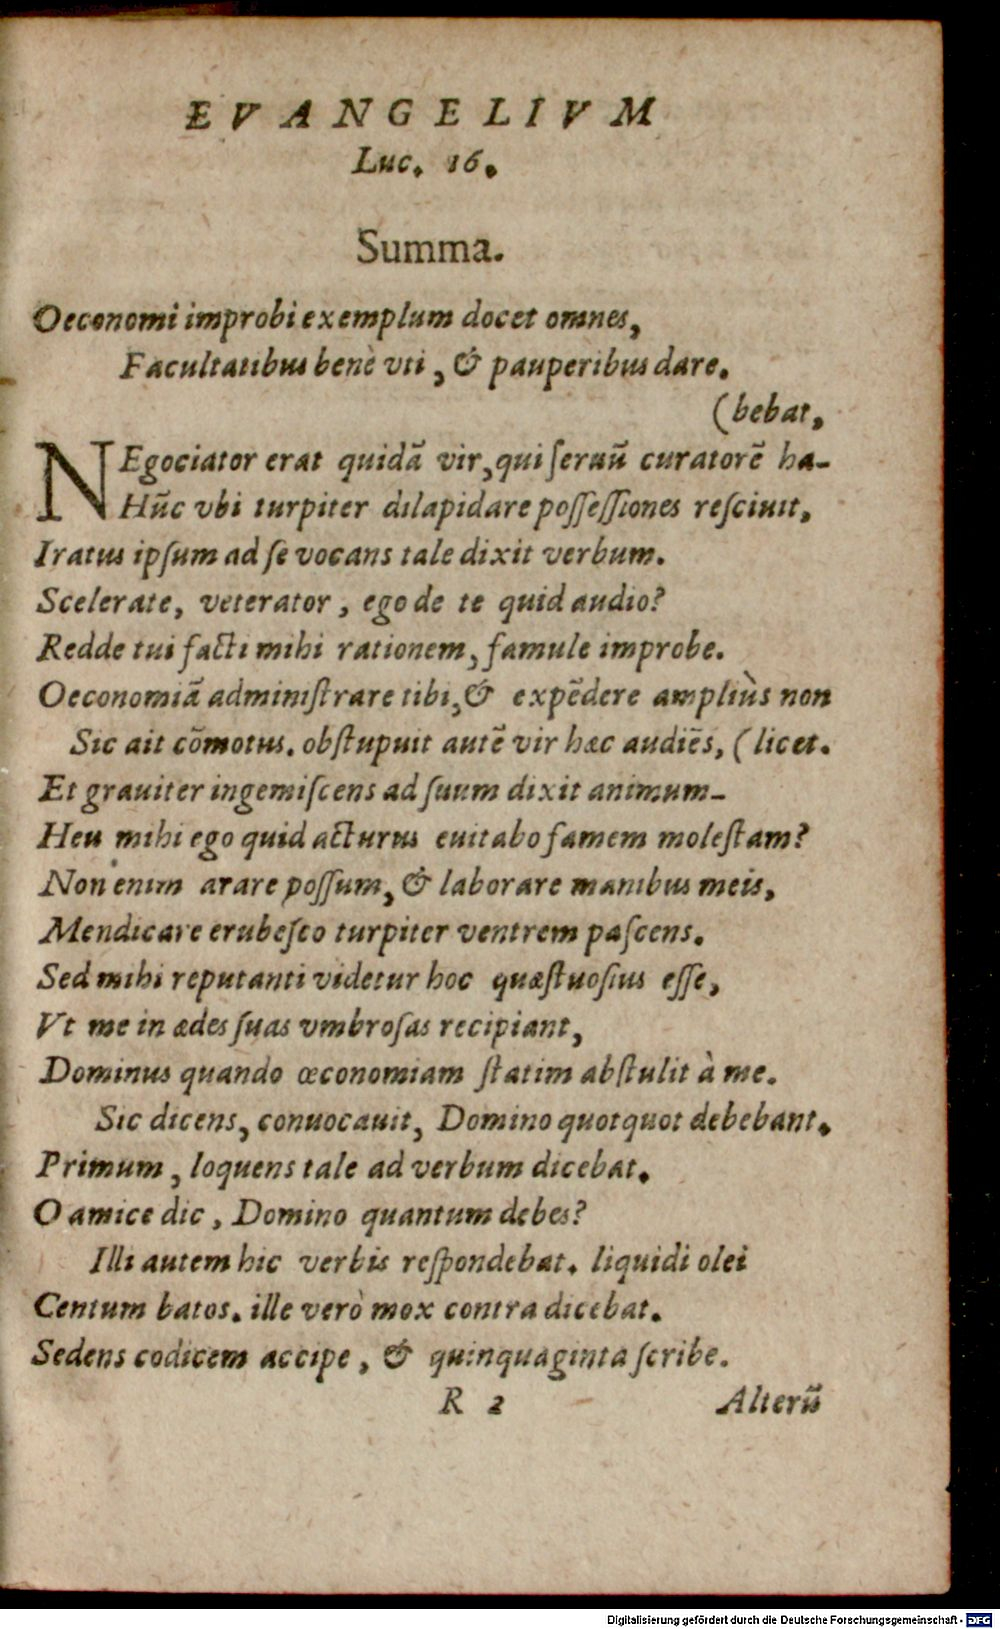 EVANGELIVM
Luc. 16.
Summa.
Oeconomi improbi exemplum docet omnes,
Facultatibus benè vti, & pauperibus dare.
(bebat,
NEgociator erat quidā vir, qui ſeruū curatorē ha-
Hūc vbi turpiter dilapidare poſſeſſiones reſciuit,
Iratus ipſum ad ſe vocans tale dixit verbum.
Scelerate, veterator, ego de te quid audio?
Redde tui facti mihi rationem, famule improbe.
Oeconomiā adminiſtrare tibi, & expēdere ampliùs non
Sic ait cōmotus. obſtupuit autē vir hæc audiēs, (licet.
Et grauiter ingemiſcens ad ſuum dixit animum-
Heu mihi ego quid acturus euitabo famem moleſtam?
Non enim arare poſſum, & laborare manibus meis,
Mendicare erubeſco turpiter ventrem paſcens.
Sed mihi reputanti videtur hoc quæſtuoſius eſſe,
Vt me in ædes ſuas vmbroſas recipiant,
Dominus quando œconomiam ſtatim abſtulit à me.
Sic dicens, conuocauit, Domino quotquot debebant.
Primum, loquens tale ad verbum dicebat.
O amice dic, Domino quantum debes?
Illi autem hic verbis reſpondebat. liquidi olei
Centum batos. ille verò mox contra dicebat.
Sedens codicem accipe, & quinquaginta ſcribe.
R 2 Alterū
Digitalisierung gefördert durch die Deutsche Forschungsgemeinschaft - DFG